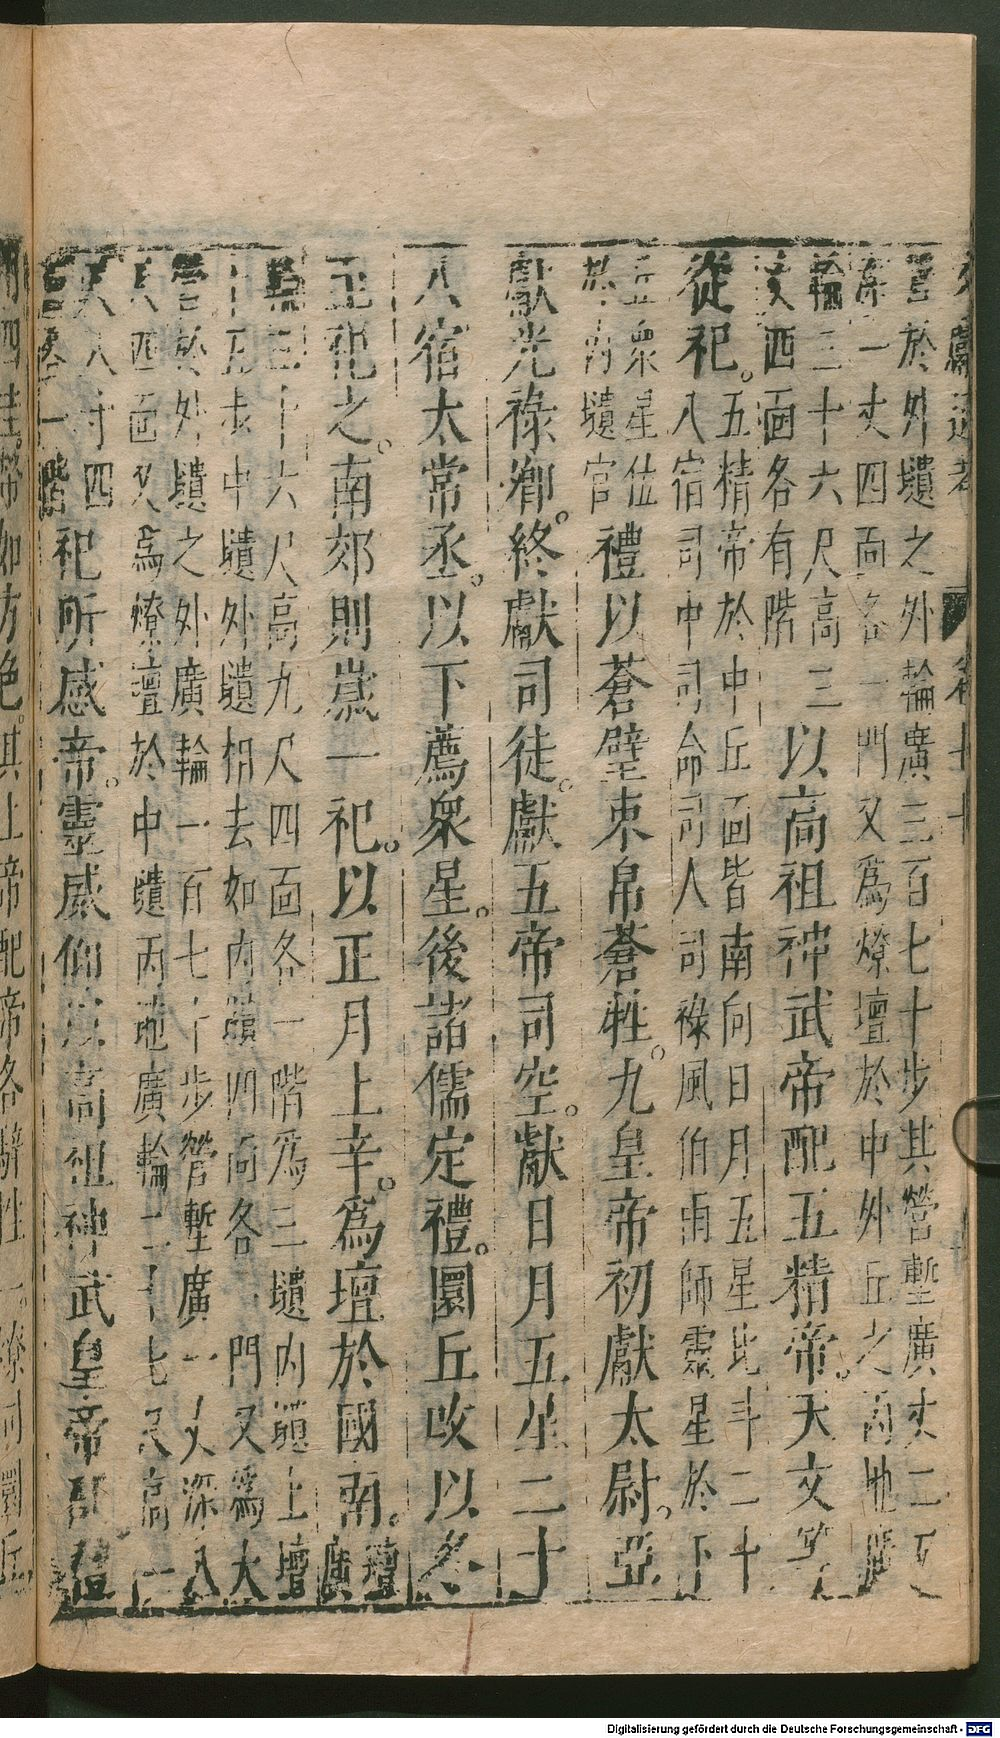 文獻通考 卷七十
營於外壝之外輪廣三百七十步其營塹廣丈二尺
深一丈四面各一門又爲燎壇於中外丘之丙地廣
輪三十六尺高三
西面各有階
以高祖神武帝配五精帝。天文等
從祀。
五精帝於中丘面皆南向日月五星北斗二十
八宿司中司命司人司祿風伯雨師靈星於下
丘衆星位
於內壝官
禮以蒼璧束帛蒼牲。九皇帝初獻太尉。亞
獻光祿卿。終獻司徒。獻五帝司空。獻日月五星二十
八宿太常丞。以下薦衆星。後諸儒定禮。圜丘改以冬
至祀之。南郊則歲一祀。以正月上辛。爲壇於國南。
壇
廣
輪三十六尺高九尺四面各一階爲三壝內壝上壇
十五步中壝外壝相去如內壝四面各一門又爲大
營於外壝之外廣輪一百七十步營塹廣一丈深八
尺四面又爲燎壇於中壝丙地廣輪二十七尺高一
尺八寸四
面各一階
祀所感帝。靈威仰以高祖神武皇帝配禮
用四圭幣如方色。其上帝配帝各騂牲一。燎同圜丘